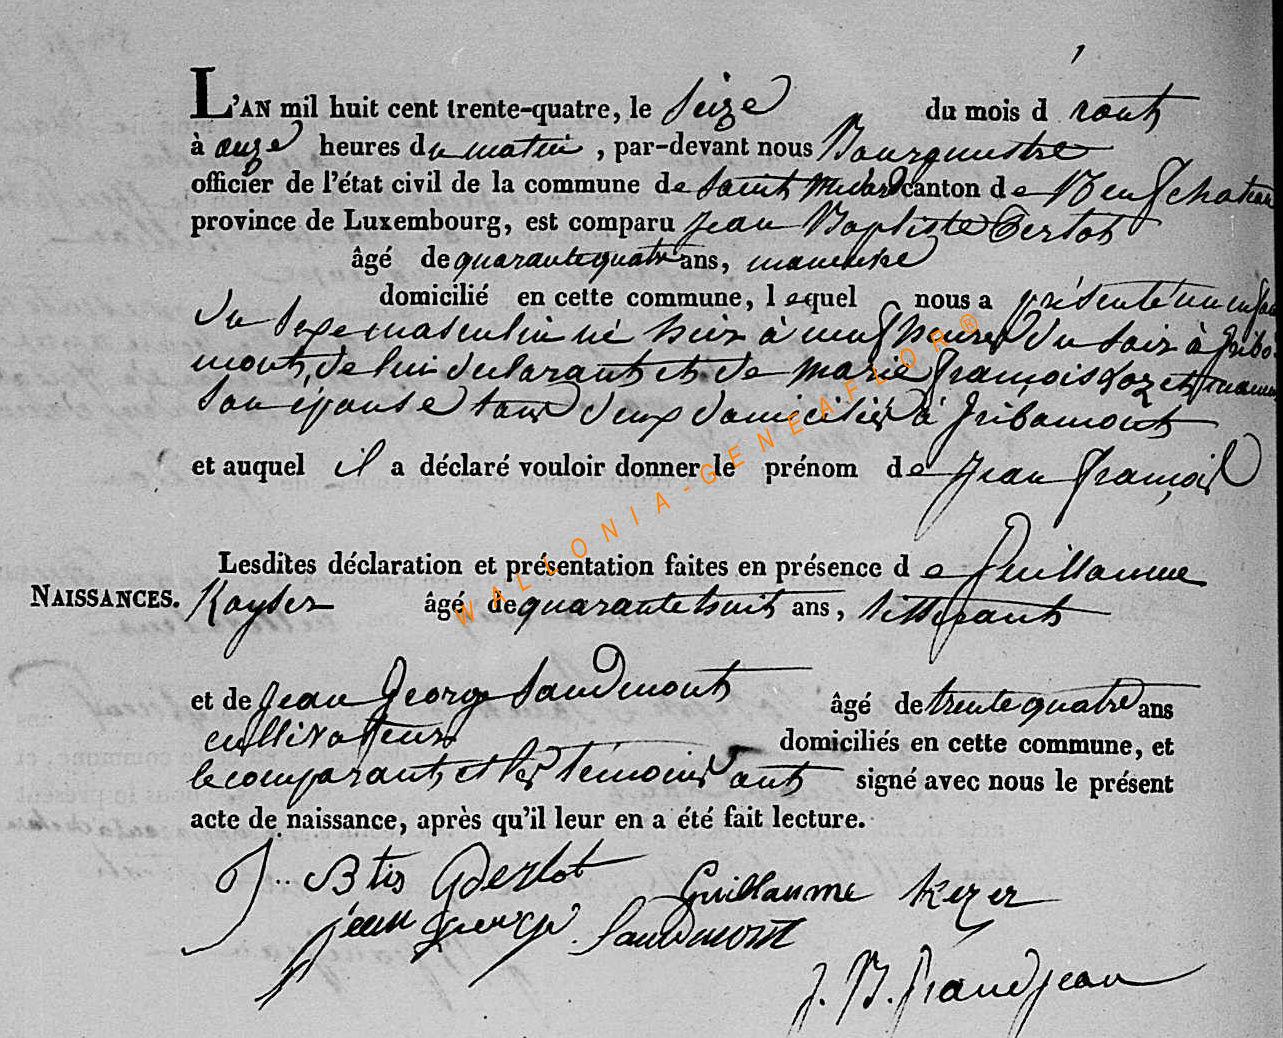 L'AN mil huit cent trente-quatre, le Seize du mois d'août
à onze heures du matin, par-devant nous Bourgmestre
officier de l'état civil de la commune de Saint Médard canton de Neufchateau
province de Luxembourg, est comparu Jean Baptiste
âgé de quarante quatre ans, manuvre
domicilié en cette commune, lequel nous a présenté un enfant
du sexe masculin né hier à neuf heures du soir à Gribo
mont, de lui déclarant et de marie françoise
son épouse tous deux domiciliés à Gribomont
et auquel il a déclaré vouloir donner le prénom de Jean François
Lesdites déclaration et présentation faites en présence de Guillaume
NAISSANCES.
Kayser âgé de quarante huit ans, tisserant
et de Jean George Saudmont âgé de trente quatre ans
cultivateur domiciliés en cette commune, et
le comparant et les témoins ont signé avec nous le présent
acte de naissance, après qu'il leur en a été fait lecture.
J.. Btis Guillaume Kezer
jean george Saudmont
J. B. Grandjean
WALLONIA-GENEAFLOR®